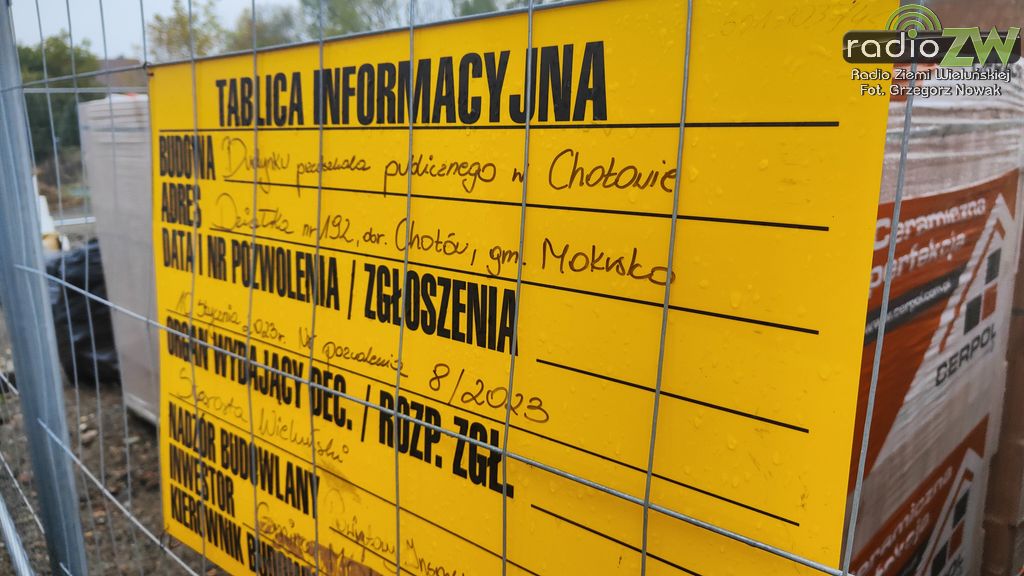 radioZW
Radio Ziemi Wieluńskiej
Fot. Grzegorz Nowak
TABLICA INFORMACYJNA
BUDOWA Budynku przedszkola publicznego w Chotowie
ADRES Działka nr 192, obr. Chotów, gm. Mokrsko
DATA I NR POZWOLENIA / ZGŁOSZENIA
10 stycznia 2023r. Nr pozwolenia 8/2023
ORGAN WYDAJĄCY DEC. / ROZP. ZGŁ.
Starosta Wieluński
NADZÓR BUDOWLANY Powiatowy
INWESTOR Gmina
KIEROWNIK
Ceramiczna
perfekcja
CERPOL